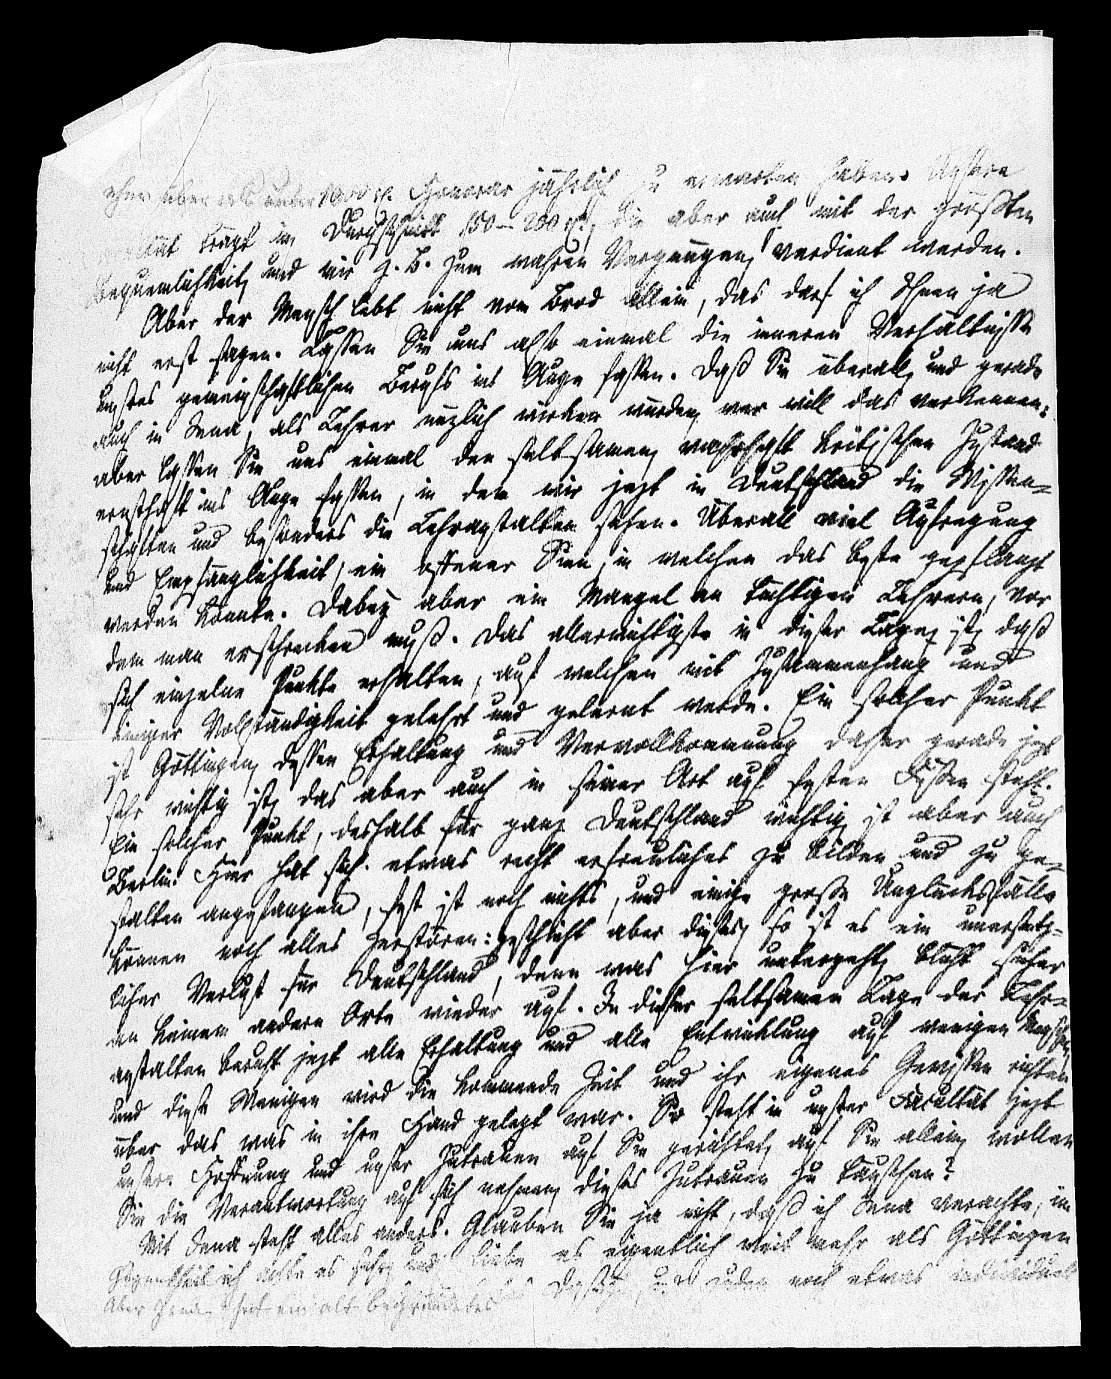 eher über als unter 1000 rh. Honorar jährlich zu erwarten haben. Unsere
Facultät trägt im Durchschnitt 150–200 rh., die aber auch mit der größten
Bequemlichkeit, und mir z. B. zum wahren Vergnügen, verdient werden.
Aber der Mensch lebt nicht vom Brod allein, das darf ich Ihnen ja
nicht erst sagen. Lassen Sie uns also einmal die inneren Verhältnisse
unsres gemeinschaftlichen Berufs ins Auge fassen. Daß Sie überall, und gerade
auch in Jena, als Lehrer nüzlich wirken würden, wer will das verkennen:
aber lassen Sie uns einmal den seltsamen, wahrhaft kritischen Zustand
ernsthaft ins Auge fassen, in dem wir jezt in Deutschland die Wissen-
schaften und besonders die Lehranstalten sehen. Überall viel Aufregung
und Empfänglichkeit, ein offener Sinn, in welchen das beste gepflanzt
werden könnte. Dabey aber ein Mangel an tüchtigen Lehrern, vor
dem man erschrecken muß. Das allerwichtigste in dieser Lage, ist, daß
sich einzelne Punkte erhalten, auf welchen mit Zusammenhang und
einiger Vollständigkeit gelehrt und gelernt werde. Ein solcher Punkt
ist Göttingen, dessen Erhaltung und Vervollkommnung daher gerade jezt
sehr wichtig ist, das aber auch in seiner Art auf festen Füßen steht.
Ein solcher Punkt, deshalb für ganz Deutschland wichtig, ist aber auch
Berlin. Hier hat sich etwas recht erfreuliches zu bilden und zu ge-
stalten angefangen, fest ist noch nichts, und einige große Unglücksfälle
können noch alles zerstören: geschieht aber dieses, so ist es ein unersetz-
licher Verlust für Deutschland, denn was hier untergeht, blüht sicher
an keinem andern Orte wieder auf. In dieser seltsamen Lage der Lehr-
anstalten beruht jezt alle Erhaltung und alle Entwicklung auf wenigen Menschen
und diese Wenigen wird die kommende Zeit und ihr eigenes Gewissen richten
über das was in ihre Hand gelegt war. So steht in unsrer Facultät jezt
unsere Hoffnung und unser Zutrauen auf Sie gerichtet, auf Sie allein, wollen
Sie die Verantwortung auf sich nehmen, dieses Zutrauen zu täuschen?
Mit Jena steht alles anders. Glauben Sie ja nicht, daß ich Jena verachte, im
Gegentheil ich achte es sehr und liebe es eigentlich weit mehr als Göttingen
aber Jena hat ein alt begründetes noch etwas individuell